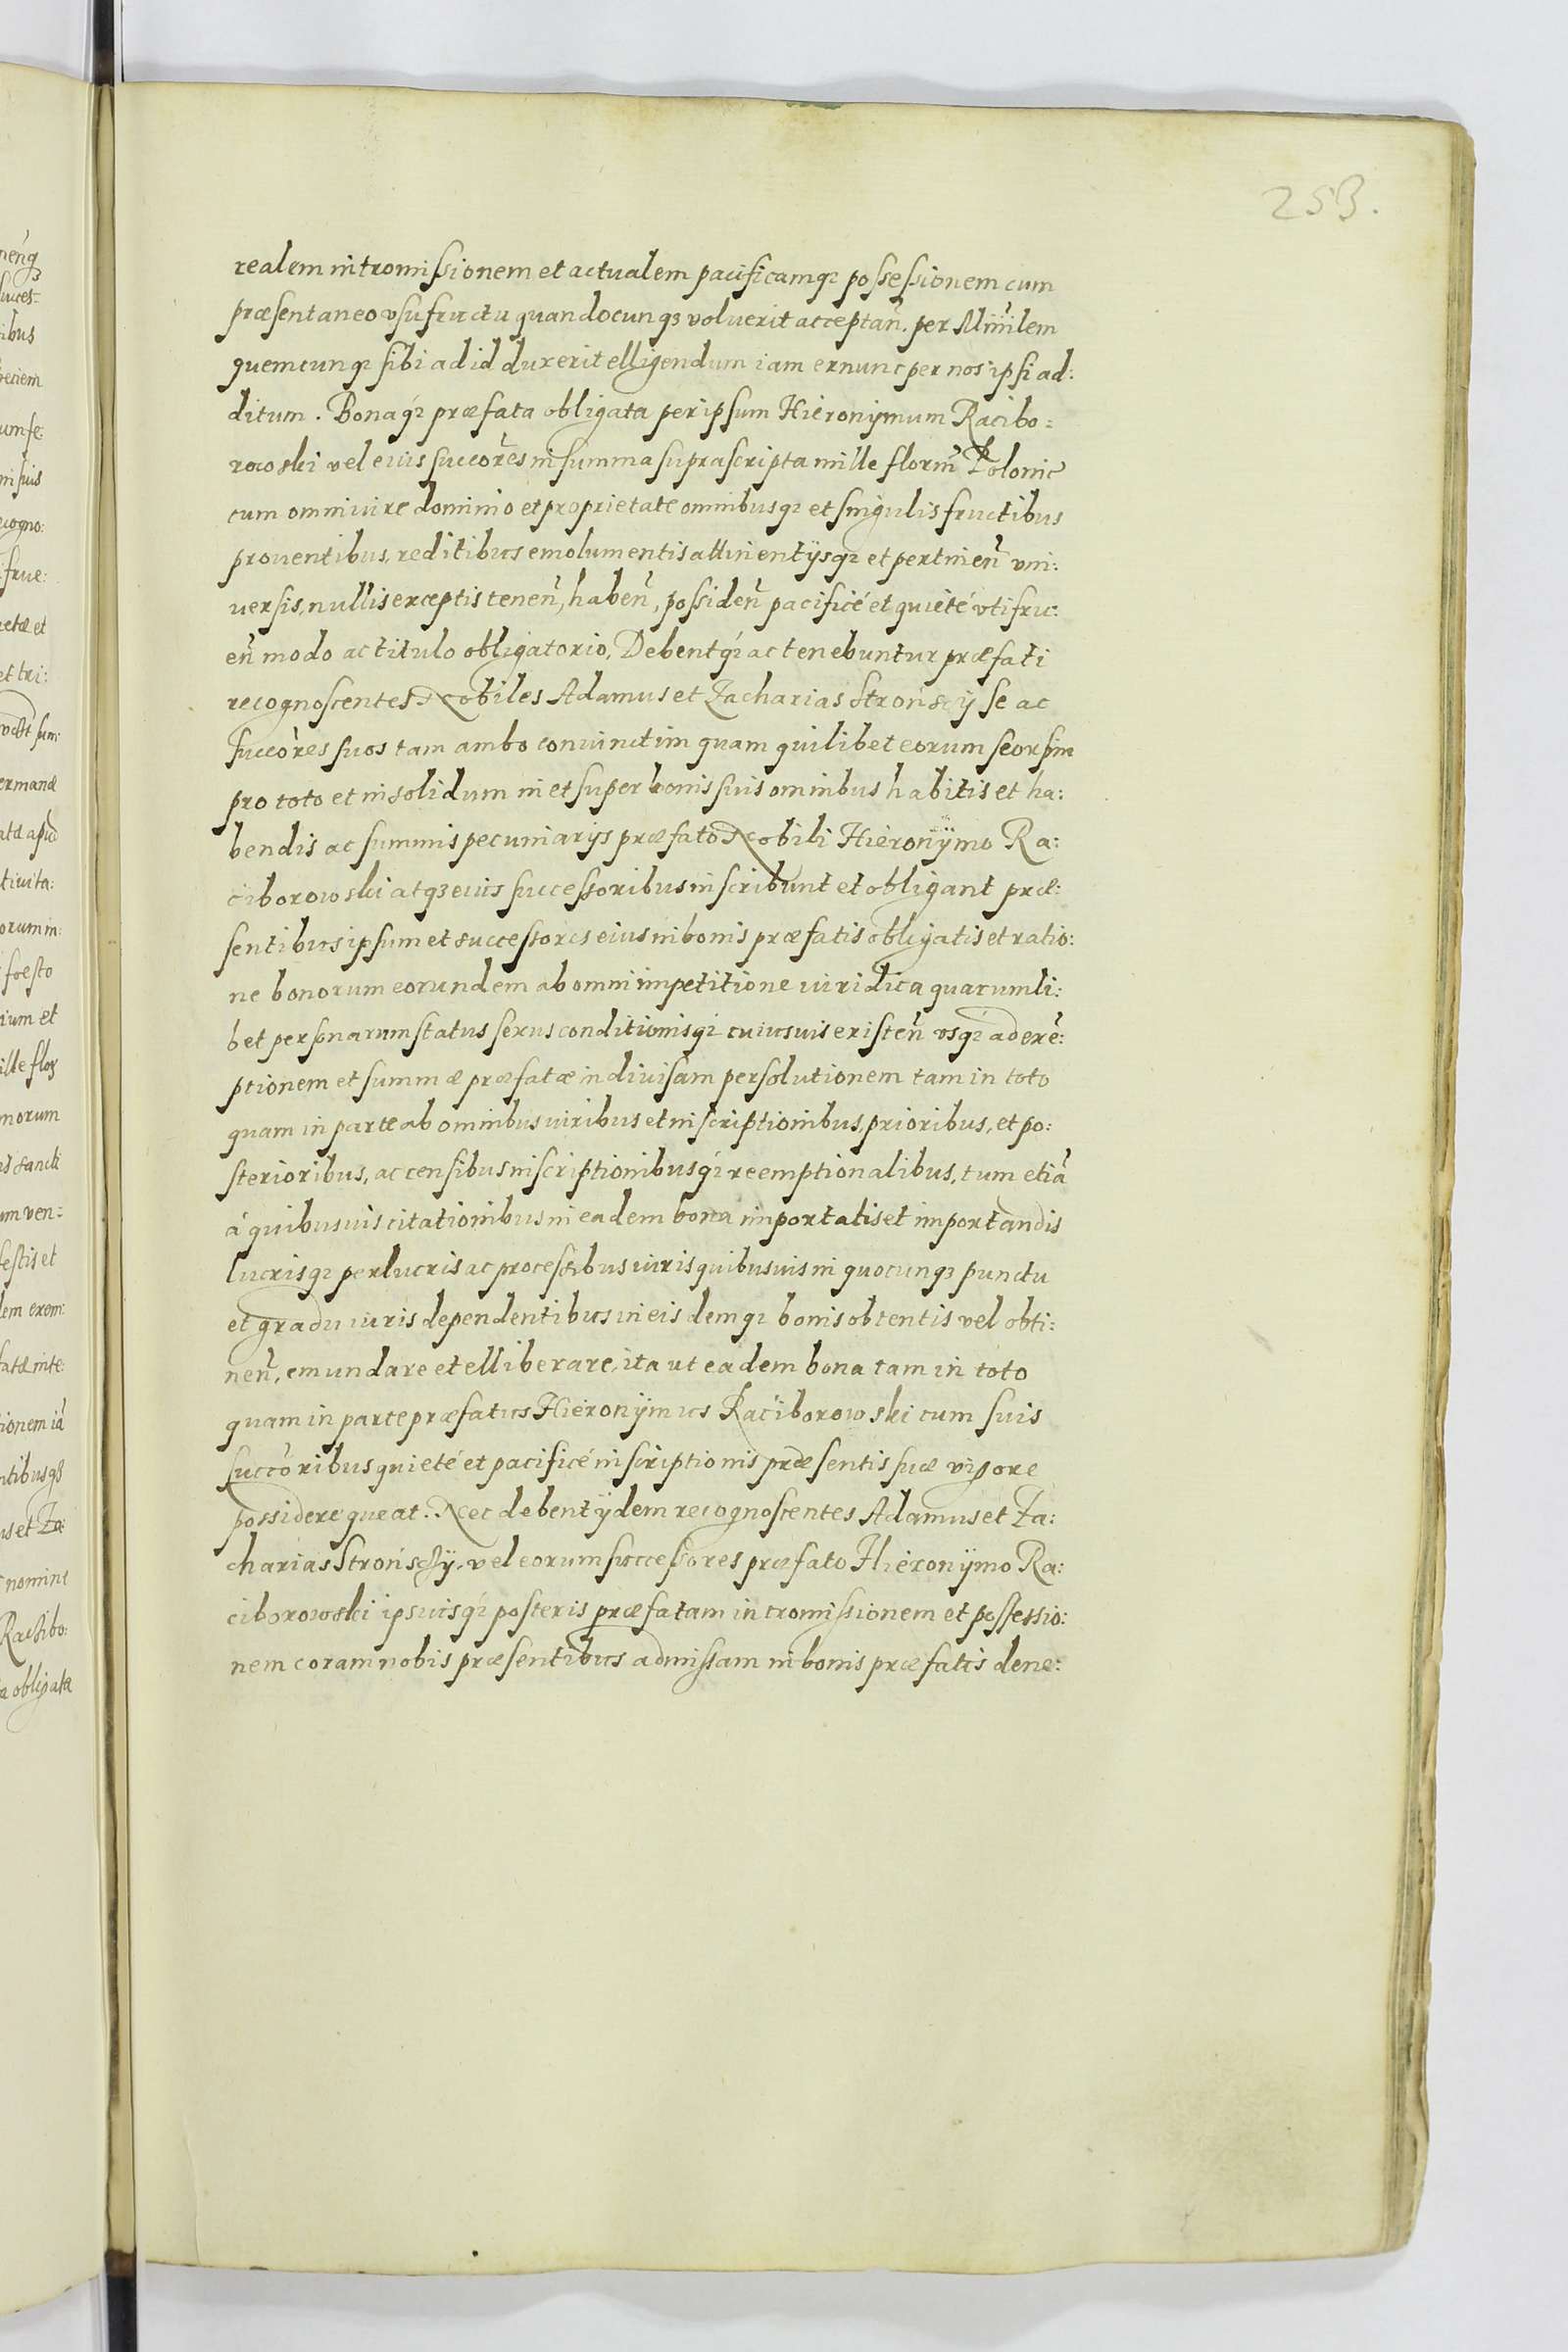 253.
realem intromissionem et actualem pacificamq₃ possessionem cum
præsentaneo vsufructu quandocunq₃ voluerit acceptan̄. per Mīnlem
quemcunq₃ sibi ad id duxerit elligendum iam exnunc per nos ipsi ad:
ditum. Bonaq́₃ præfata obligata per ipsum Hieronÿmum Racibo=
rowski vel eius succōres in summa suprascripta mille florn̄ Polonic
cum omni iure dominio et proprietate omnibusq₃ et singulis fructibus
prouentibus, reditibus emolumentis attinentÿsq₃ et pertinen̄ vni:
uersis, nullis exceptis tenen̄, haben̄, possiden̄ pacificé et quieté vtifru:
en̄ modo ac titulo obligatorio. Debentq́₃ ac tenebuntur præfati
recognoscentes Nobiles Adamus et Zacharias Stronscÿ se ac
succōres suos tam ambo coniunctim quam quilibet eorum seorsim
pro toto et in solidum in et super bonis suis omnibus habitis et ha:
bendis ac summis pecuniarÿs præfato Nobili Hieronÿmo Ra:
ciborowski atq₃ eius successoribus inscribunt et obligant præ:
sentibus ipsum et successores eius in bonis præfatis obligatis et ratio:
ne bonorum eorundem ab omni impetitione iuridica quarumli:
bet personarum status sexus conditionisq₃ cuiusuis existen̄ vsq₃ ad exē:
ptionem et summæ præfatæ indiuisam persolutionem tam in toto
quam in parte ab omnibus iuribus et inscriptionibus, prioribus, et po:
sterioribus, ac censibus inscriptionibusq́₃ reemptionalibus, tum etiā
á quibusuis citationibus in eadem bona importatis et importandis
lucrisq₃ perlucris ac processibus iuris quibusuis in quocunq₃ punctu
et gradu iuris dependentibus in eisdemq₃ bonis obtentis vel obti:
nen̄, emundare et elliberare, ita ut eadem bona tam in toto
quam in parte præfatus Hieronÿmus Raciborowski cum suis
succōribus quieté et pacificé inscriptionis præsentis suæ vigore
possidere queat. Nec debent ÿdem recognoscentes Adamus et Za:
charias Stronscÿ, vel eorum successores præfato Hieronÿmo Ra:
ciborowski ipsiusq́₃ posteris præfatam intromissionem et possessio:
nem coram nobis præsentibus admissam in bonis præfatis dene: